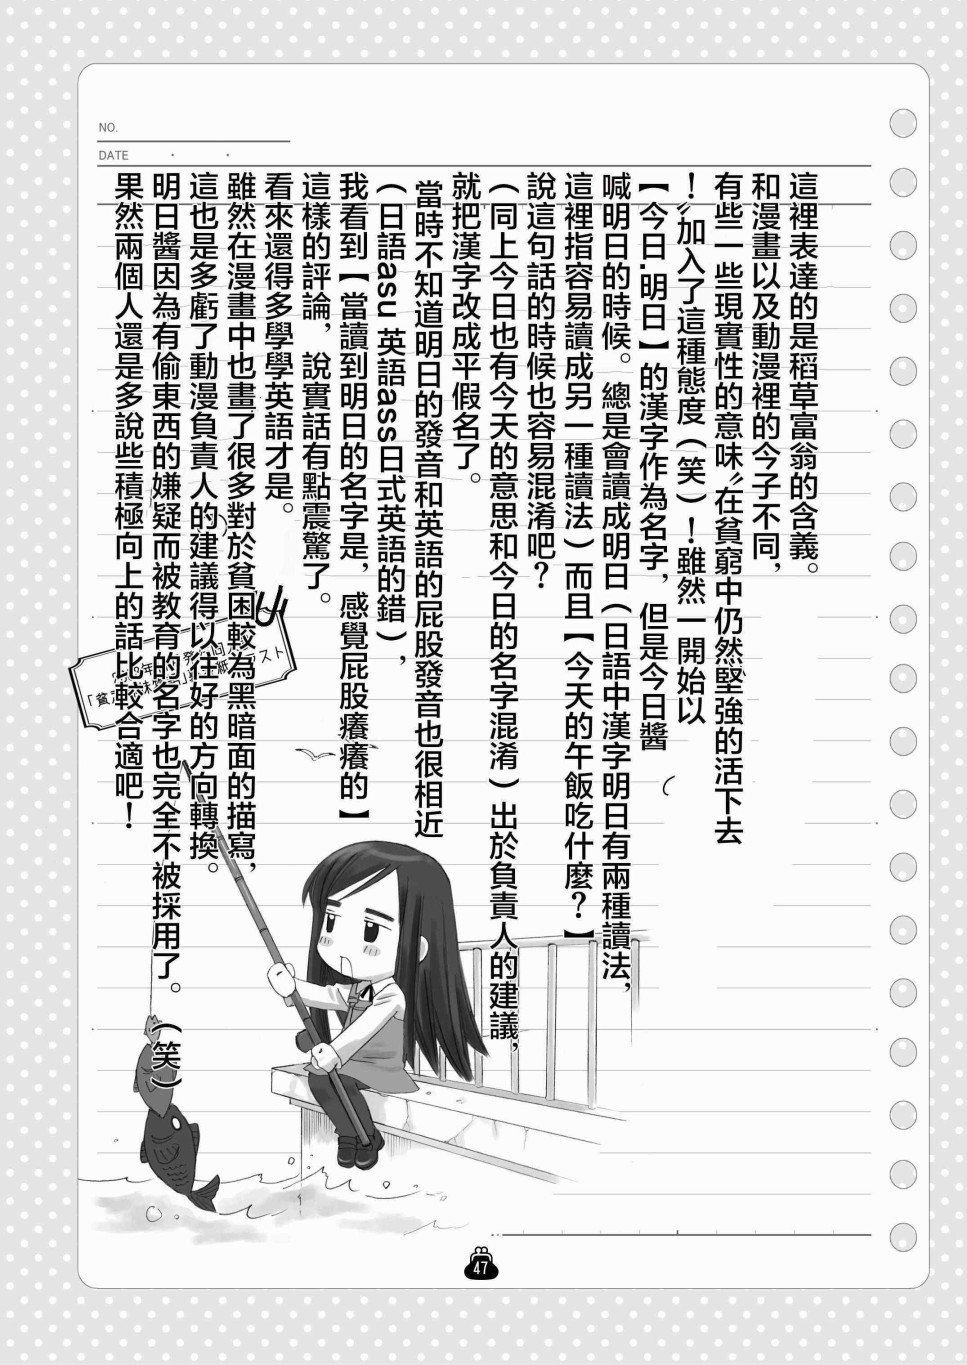 NO.
DATE
這裡表達的是稻草富翁的含義。
和漫畫以及動漫裡的今子不同,
有些一些現實性的意味〞在貧窮中仍然堅強的活下去
！〞加入了這種態度（笑）！雖然一開始以
【今日.明日】的漢字作為名字，但是今日醬
喊明日的時候。總是會讀成明日（日語中漢字明日有兩種讀法,
這裡指容易讀成另一種讀法）而且【今天的午飯吃什麼？】
說這句話的時候也容易混淆吧？
（同上今日也有今天的意思和今日的名字混淆）出於負責人的建議,
就把漢字改成平假名了。
當時不知道明日的發音和英語的屁股發音也很相近
（日語asu 英語ass日式英語的錯），
我看到【當讀到明日的名字是，感覺屁股癢癢的】
這樣的評論，說實話有點震驚了。
看來還得多學學英語才是。
雖然在漫畫中也畫了很多對於貧困較為黑暗面的描寫,
這也是多虧了動漫負責人的建議得以往好的方向轉換。
明日醬因為有偷東西的嫌疑而被教育的名字也完全不被採用了。（笑）
果然兩個人還是多說些積極向上的話比較合適吧！
47